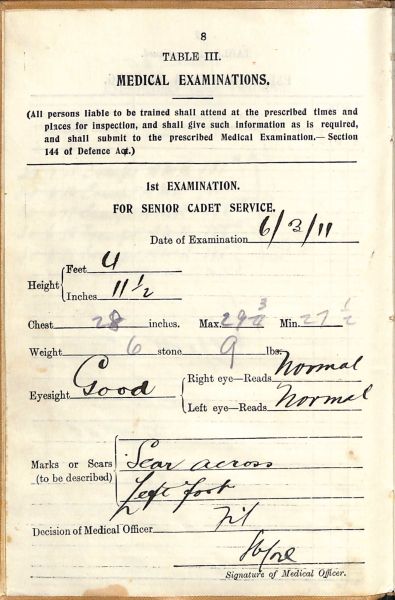 8
TABLE III.
MEDICAL EXAMINATIONS.
(All persons liable to be trained shall attend at the prescribed times and
places for inspection, and shall give such information as is required,
and shall submit to the prescribed Medical Examination.—Section
144 of Defence Act.)
1st EXAMINATION.
FOR SENIOR CADET SERVICE.
Date of Examination 6/3/11
Height Feet 4
Inches 11 1/2
Chest 28 inches. Max. 29 3/4 Min. 27 1/2
Weight 6 stone 9 lbs.
Eyesight Good Right eye—Reads Normal
Left eye—Reads Normal
Marks or Scars (to be described) Scar across
Left foot
Decision of Medical Officer Fit
Signature of Medical Officer.